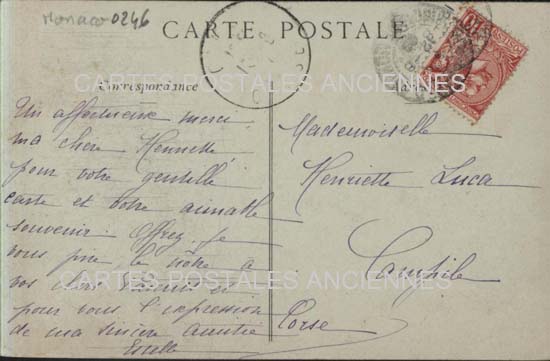 Monaco 0246
CARTE POSTALE
CARTES POSTALES ANCIENNES
Correspondance
Un affectueux merci
ma chère Henriette
pour votre gentille
carte et votre aimable
souvenir. Offrez, je
vous prie, le nôtre à
vos chers et
pour vous l'expression
de ma sincère amitié
Estelle
Mademoiselle
Henriette Luca
Campile
Corse
CARTES POSTALES ANCIENNES